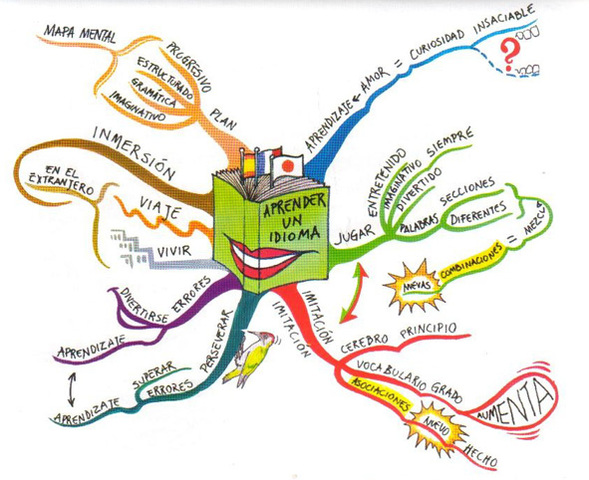 MAPA MENTAL
PROGRESIVO
ESTRUCTURADO
GRAMÁTICA
IMAGINATIVO
PLAN
APRENDIZAJE AMOR = CURIOSIDAD INSACIABLE
?
INMERSIÓN
EN EL
EXTRANJERO
VIAJE
VIVIR
APRENDER
UN
IDIOMA
JUGAR
ENTRETENIDO
IMAGINATIVO SIEMPRE
DIVERTIDO
PALABRAS SECCIONES
DIFERENTES
MEZCLA
=
COMBINACIONES
NUEVAS
DIVERTIRSE ERRORES
APRENDIZATE
PERSEVERAR
SUPERAR
ERRORES
APRENDIZATE
IMITACIÓN
IMITACIÓN
CEREBRO PRINCIPIO
VOCABULARIO GRADO
AUMENTA
ASOCIACIONES
NUEVO
HECHO